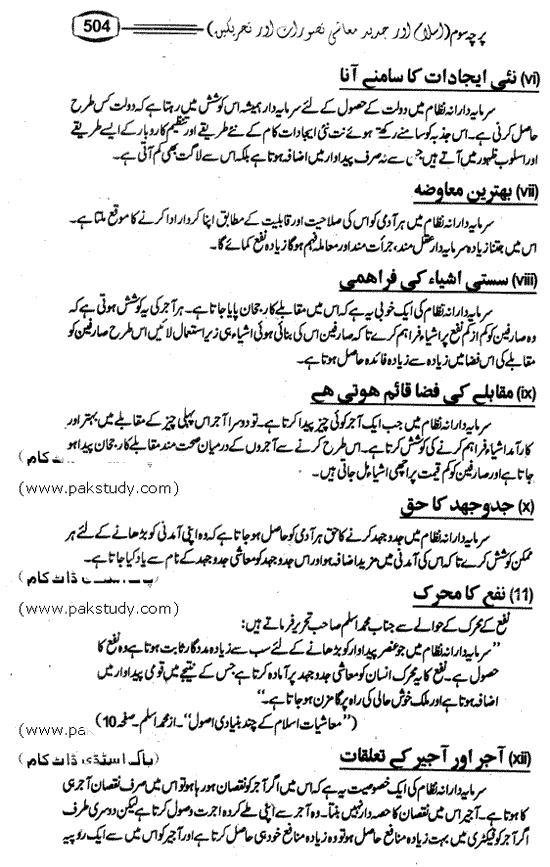 پرچہ سوم (اسلام اور جدید معاشی تصورات اور تحریکیں)
504
(vi) نئی ایجادات کا سامنے آنا
سرمایہ دارانہ نظام میں دولت کے حصول کے لئے سرمایہ دار ہمیشہ اس کوشش میں رہتا ہے کہ دولت کس طرح
حاصل کرنی ہے۔ اس جذبہ کو سامنے رکھتے ہوئے نت نئی ایجادات کام کے نئے طریقے اور تنظیم کاروبار کے ایسے طریقے
اور اسلوب ظہور میں آتے ہیں جس سے نہ صرف پیداوار میں اضافہ ہوتا ہے بلکہ اس سے لاگت بھی کم آتی ہے۔
(vii) بہترین معاوضہ
سرمایہ دارانہ نظام میں ہر آدمی کو اس کی صلاحیت اور قابلیت کے مطابق اپنا کردار ادا کرنے کا موقع ملتا ہے۔
اس میں جتنا زیادہ سرمایہ دار عقل مند، جرأت مند اور معاملہ فہم ہوگا زیادہ نفع کمائے گا۔
(viii) سستی اشیاء کی فراھمی
سرمایہ دارانہ نظام کی ایک خوبی یہ ہے کہ اس میں مقابلے کا رجحان پایا جاتا ہے۔ ہر آجر کی یہ کوشش ہوتی ہے کہ
وہ صارفین کو کم از کم نفع پر اشیاء فراہم کرے تاکہ صارفین اس کی بنائی ہوئی اشیاء ہی زیر استعمال لائیں اس طرح صارفین کو
مقابلے کی اس فضا میں زیادہ سے زیادہ فائدہ حاصل ہوتا ہے۔
(ix) مقابلے کی فضا قائم ھوتی ھے
سرمایہ دارانہ نظام میں جب ایک آجر کوئی چیز پیدا کرتا ہے۔ تو دوسرا آجر اس پہلی چیز کے مقابلے میں بہتر اور
کارآمد اشیاء فراہم کرنے کی کوشش کرتا ہے۔ اس طرح کرنے سے آجروں کے درمیان صحت مند مقابلے کا رجحان پیدا ہو
جاتا ہے اور صارفین کو کم قیمت پر اچھی اشیاء مل جاتی ہیں۔
ڈاٹ کام)
(www.pakstudy.com)
(x) جدوجھد کا حق
سرمایہ دارانہ نظام میں جدوجہد کرنے کا حق ہر آدمی کو حاصل ہو جاتا ہے کہ وہ اپنی آمدنی کو بڑھانے کے لئے ہر
ممکن کوشش کرے تاکہ اس کی آمدنی میں مزید اضافہ ہو اور اس جدوجہد کو معاشی جدوجہد کے نام سے یاد کیا جاتا ہے۔
ڈاٹ کام)
(www.pakstudy.com)
(11) نفع کا محرک
نفع کے محرک کے حوالے سے جناب محمد اسلم صاحب تحریر فرماتے ہیں:
"سرمایہ دارانہ نظام میں جو عنصر پیداوار کو بڑھانے کے لئے سب سے زیادہ مددگار ثابت ہوتا ہے وہ نفع کا
حصول ہے۔ نفع کا یہ محرک انسان کو معاشی جدوجہد پر آمادہ کرتا ہے جس کے نتیجے میں قومی پیداوار میں
اضافہ ہوتا ہے اور ملک خوش حالی کی راہ پر گامزن ہو جاتا ہے۔"
("معاشیات اسلام کے چند بنیادی اصول"۔ از محمد اسلم۔ صفحہ 10)
(www.pak
(xii) آجر اور آجیر کے تعلقات
(پاک اسٹڈی ڈاٹ کام)
سرمایہ دارانہ نظام کی ایک خصوصیت یہ ہے کہ اس میں اگر آجر کو نقصان ہو رہا ہو تو اس میں صرف نقصان آجر ہی
کا ہوتا ہے۔ آجیر اس میں نقصان کا حصہ دار نہیں بنتا۔ وہ آجر سے اپنی طے کردہ اجرت وصول کرتا ہے لیکن دوسری طرف
اگر آجر کو فیکٹری میں بہت زیادہ منافع حاصل ہو تو وہ زیادہ منافع خود ہی حاصل کرتا ہے اور آجیر کو اس میں سے ایک روپیہ